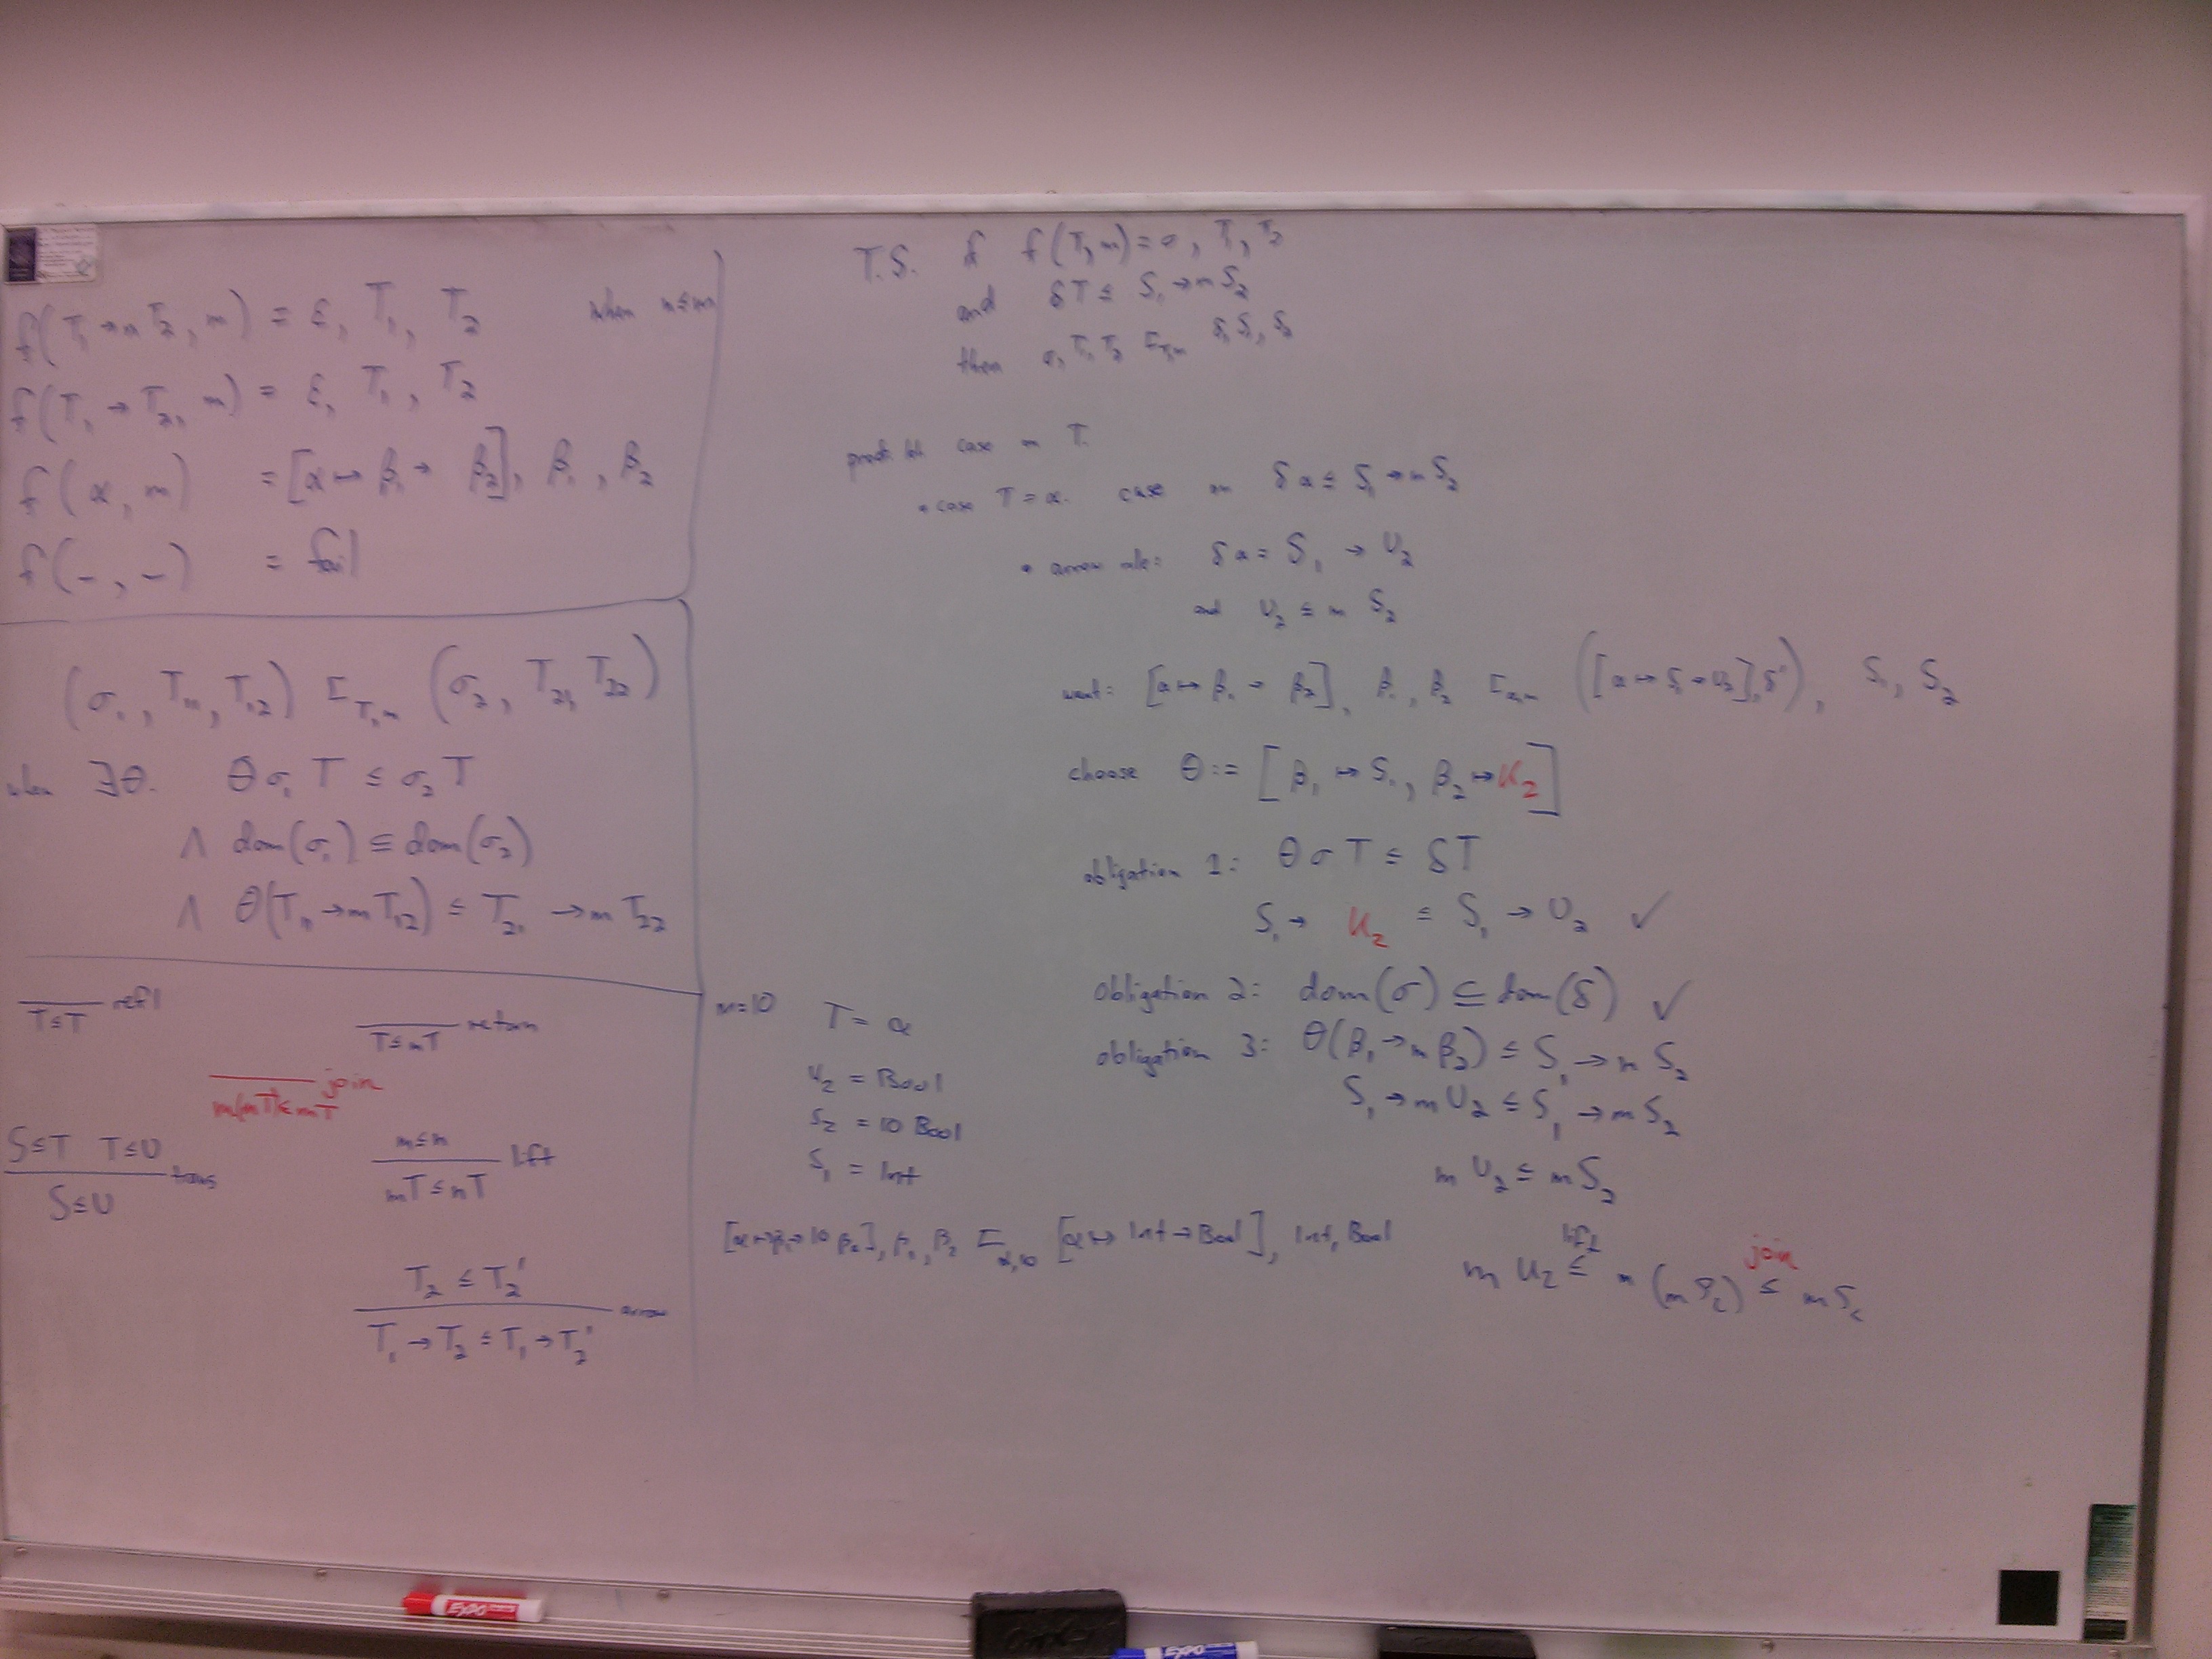 f(T₁ → n T₂, m) = ε, T₁, T₂ when n ≤ m
f(T₁ → T₂, m) = ε, T₁, T₂
f(α, m) = [α ↦ β₁ → β₂], β₁, β₂
f(-, -) = fail
(σ₁, T₁₁, T₁₂) ⊑_T,m (σ₂, T₂₁, T₂₂)
when ∃θ. θσ₁T ≤ σ₂T
∧ dom(σ₁) ⊆ dom(σ₂)
∧ θ(T₁₁ → m T₁₂) ≤ T₂₁ → m T₂₂
T ≤ T refl
T ≤ mT return
m(mT) ≤ mT join
S ≤ T T ≤ U
S ≤ U trans
m ≤ n
mT ≤ nT lift
T₂ ≤ T₂'
T₁ → T₂ ≤ T₁ → T₂' arrow
T.S. if f(T, m) = σ, T₁, T₂
and δT ≤ S₁ → m S₂
then σ, T₁, T₂ ⊑_T,m δ, S₁, S₂
case on T.
• case T = α. case on δα ≤ S₁ → m S₂
• arrow rule: δα = S₁ → U₂
and U₂ ≤ m S₂
want: [α ↦ β₁ → β₂], β₁, β₂ ⊑_α,m ([α ↦ S₁ → U₂], δ'), S₁, S₂
choose θ := [β₁ ↦ S₁, β₂ ↦ U₂]
obligation 1: θσT ≤ δT
S₁ → U₂ ≤ S₁ → U₂ ✓
obligation 2: dom(σ) ⊆ dom(δ) ✓
obligation 3: θ(β₁ → m β₂) ≤ S₁ → m S₂
S₁ → m U₂ ≤ S₁ → m S₂
m U₂ ≤ m S₂
lift join
m U₂ ≤ m (m S₂) ≤ m S₂
m = 10 T = α
U₂ = Bool
S₂ = 10 Bool
S₁ = Int
[α ↦ β₁ → 10 β₂], β₁, β₂ ⊑_α,10 [α ↦ Int → Bool], Int, Bool
EXPO
EXPO